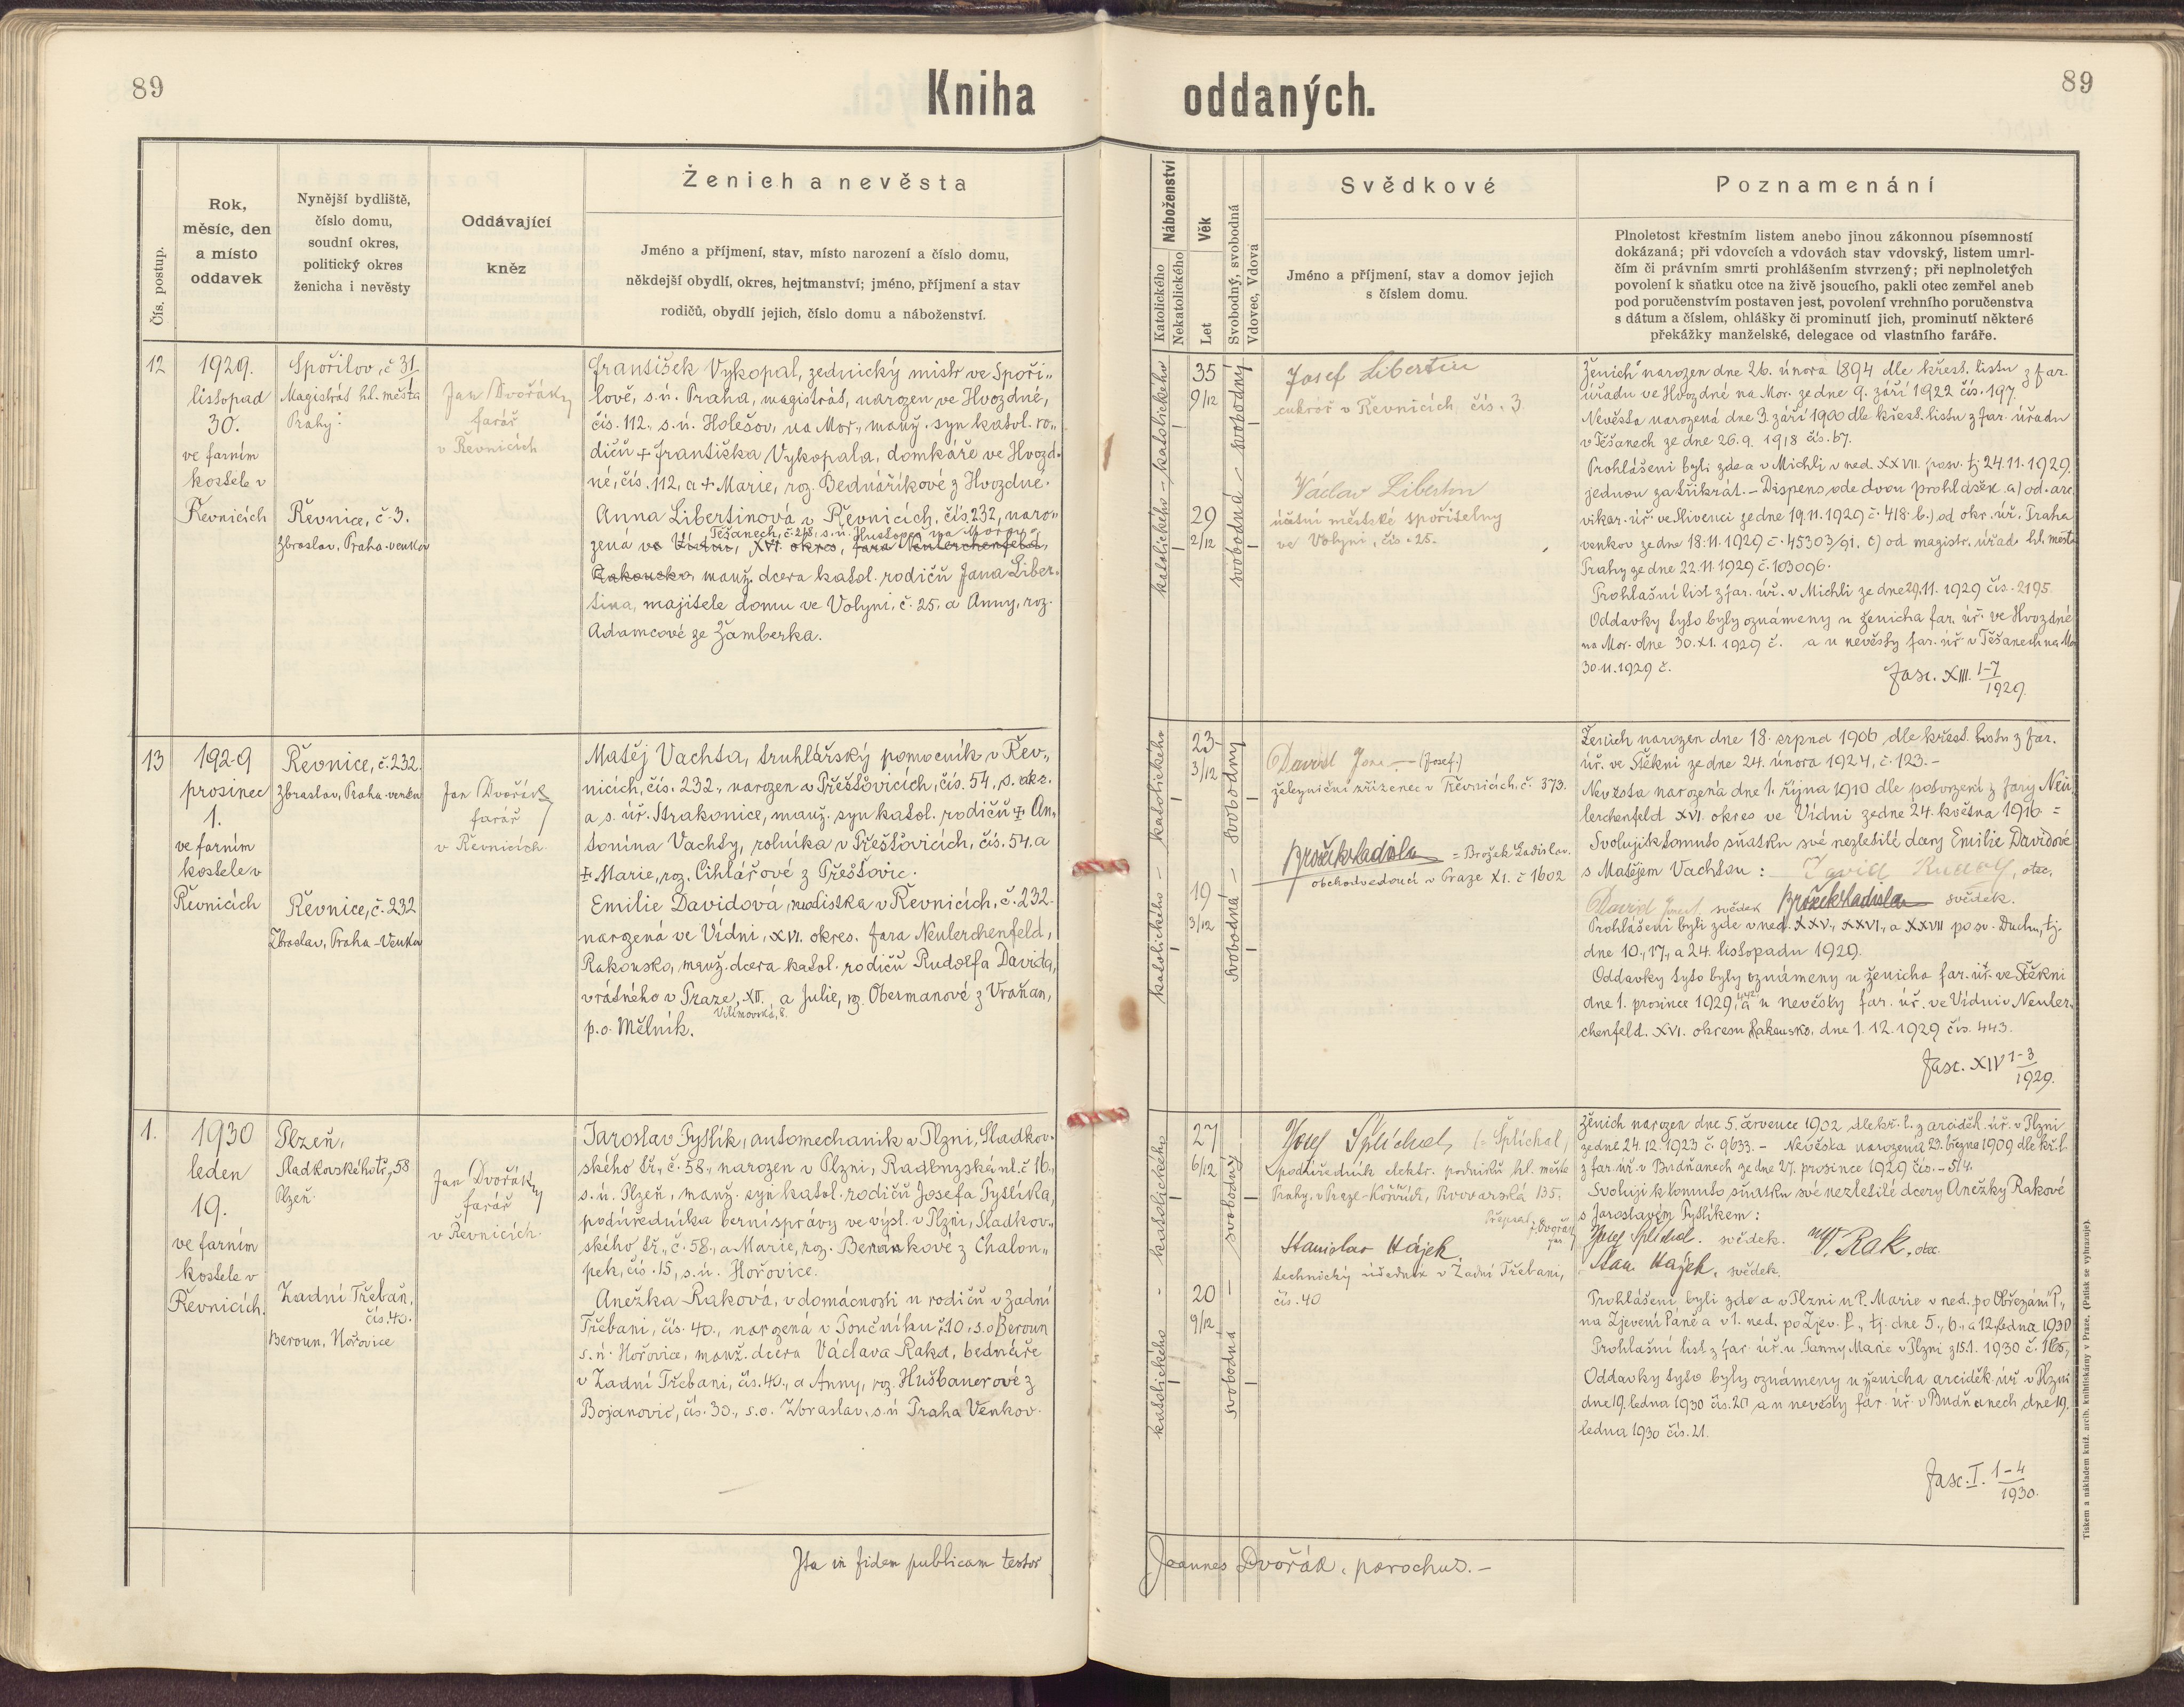 89
Kniha oddaných.
89
Čís. postup.
Rok,
měsíc, den
a místo
oddavek
Nynější bydliště,
číslo domu,
soudní okres,
politický okres
ženicha i nevěsty
Oddávající
kněz
Ženich a nevěsta
Jméno a příjmení, stav, místo narození a číslo domu,
někdejší obydlí, okres, hejtmanství; jméno, příjmení a stav
rodičů, obydlí jejich, číslo domu a náboženství.
Náboženství
Katolického
Nekatolického
Věk
Let
Svobodný, svobodná
Vdovec, Vdova
Svědkové
Jméno a příjmení, stav a domov jejich
s číslem domu.
Poznamenání
Plnoletost křestním listem anebo jinou zákonnou písemností
dokázaná; při vdovcích a vdovách stav vdovský, listem umrl-
čím či právním smrti prohlášením stvrzený; při neplnoletých
povolení k sňatku otce na živě jsoucího, pakli otec zemřel aneb
pod poručenstvím postaven jest, povolení vrchního poručenstva
s dátum a číslem, ohlášky či prominutí jich, prominutí některé
překážky manželské, delegace od vlastního faráře.
12
1929.
listopad
30.
ve farním
kostele v
Řevnicích
Spořilov, č 31
Magistrát hl. města
Prahy.
Řevnice, č. 3.
Zbraslav, Praha-venkov
Jan Dvořák,
farář
v Řevnicích
František Vykopal, zednický mistr ve Spoři-
lově, s.ú. Praha, magistrát, narozen ve Hvozdné,
čís. 112., s.ú. Holešov, na Mor., manž. syn katol. ro-
dičů + Františka Vykopala, domkáře ve Hvozd-
né, čís. 112, a + Marie, roz. Bednaříkové z Hvozdné.
Anna Libertinová v Řevnicích, čís. 232, naro-
Těšanech, č. 218, s.ú. Hustopeč na Moravě
zená ve Vídni, XVI. okres, fara Neulerchenfeld,
Rakousko, manž. dcera katol. rodičů Jana Liber-
tina, majitele domu ve Volyni, č. 25, a Anny, roz.
Adamcové ze Žamberka.
katolického - katolického
35
9/12
29
2/12
svobodná - svobodný
Josef Libertin
cukrář v Řevnicích, čís. 3.
Václav Libertin
účetní městské spořitelny
ve Volyni, čís. 25.
Ženich narozen dne 26. února 1894 dle křest. listu z far.
úřadu ve Hvozdné na Mor. ze dne 9. září 1922 čís. 197.
Nevěsta narozená dne 3. září 1900 dle křest. listu z far. úřadu
v Těšanech ze dne 26.9. 1918 čís. 67.
Prohlášeni byli zde a v Michli v ned. XXVII. posv. tj 24.11.1929.
jednou za třikrát. - Dispens ode dvou prohlášek a) od arc.
vikar. úř. ve Slivenci ze dne 19.11.1929 č. 418. b.) od okr. úř. Praha
venkov ze dne 18.11.1929 č. 45303/91. c) od magistr. úřad. hl. města
Prahy ze dne 22.11.1929 č. 103096.
Prohlašní list z far. úř. v Michli ze dne 29.11. 1929 čís. 2195
Oddavky tyto byly oznámeny u ženicha far. úř. ve Hvozdné
na Mor. dne 30.XI. 1929 č. a u nevěsty far. úř v Těšanech na Mor
30.11.1929 č.
Fasc. XIII. 1-7
1929.
13
1929
prosinec
1.
ve farním
kostele v
Řevnicích
Řevnice, č. 232.
Zbraslav, Praha-venkov
Řevnice, č. 232
Zbraslav, Praha-Venkov
Jan Dvořák
farář
v Řevnicích.
Matěj Vachta, truhlářský pomocník v Řev-
nicích, čís. 232., narozen v Přešťovicích, čís. 54, p. okr.
a s. úř. Strakonice, manž. syn katol. rodičů + An-
tonína Vachty, rolníka v Přešťovicích, čís. 54. a
+ Marie, roz. Cihlářové z Přešťovic.
Emilie Davidová, modistka v Řevnicích, č. 232.
narozená ve Vídni, XVI. okres. fara Neulerchenfeld,
Rakousko, manž. dcera katol. rodičů Rudolfa Davida,
vrátného v Praze, XII., a Julie, roz. Obermanové z Vraňan,
p.o. Mělník.
katolického - katolického
23
3/12
19
3/12
svobodná - svobodný
David Josef (Josef.)
železniční zřízenec v Řevnicích, č. 373.
Brožek Ladislav = Brožek Ladislav.
obchodvedoucí v Praze XI. č 1602
Ženich narozen dne 18. srpna 1906 dle křest. listu z far.
úř. ve Štěkni ze dne 24. února 1924, č. 123. -
Nevěsta narozená dne 1. října 1910 dle potvrzení z fary Neu-
lerchenfeld XVI. okres ve Vídni ze dne 24. května 1916 =
Svoluji k tomuto sňatku své nezletilé dcery Emilie Davidové
s Matějem Vachtou: David Rudolf, otec.
David Josef svědek Brožek Ladislav svědek.
Prohlášeni byli zde v ned. XXV., XXVI., a XXVII po sv. Duchu, tj.
dne 10., 17., a 24. listopadu 1929.
Oddavky tyto byly oznámeny u ženicha far. úř. ve Štěkni
dne 1. prosince 1929, a u nevěsty far. úř. ve Vídni v Neuler-
chenfeld. XVI. okresu Rakousko, dne 1.12.1929 čís. 443.
Fasc. XIV 1-3
1929.
1.
1930
leden
19.
ve farním
kostele v
Řevnicích.
Plzeň,
Sladkovského tř., 58
Plzeň.
Zadní Třebaň,
čís. 40.
Beroun, Hořovice
Jan Dvořák,
farář
v Řevnicích.
Jaroslav Pytlík, automechanik v Plzni, Sladkov-
ského tř., č. 58., narozen v Plzni, Radbuzské ul. č 16.,
s.ú. Plzeň, manž. syn katol. rodičů Josefa Pytlíka,
podúředníka berní správy ve výsl. v Plzni, Sladkov-
ského tř., č. 58., a Marie, roz. Beránkové z Chalou-
pek, čís. 15, s.ú. Hořovice.
Anežka Raková, v domácnosti u rodičů v Zadní
Třebani, čís. 40., narozená v Točníku č. 10, s.o Beroun
s.ú. Hořovice, manž. dcera Václava Raka, bednáře
v Zadní Třebani, čís. 40., a Anny, roz. Hušbauerové z
Bojanovic, čís. 30., s.o. Zbraslav, s.ú Praha Venkov.
katolického - katolického
27
6/12
20
9/12
svobodná - svobodný
Josef Šplíchal, (= Šplíchal,
podúředník elektr. podniků hl. města
Prahy, v Praze-Košířích, Pivovarská 135.
Stanislav Hájek.
technický úředník v Zadní Třebani,
čís. 40
Ženich narozen dne 5. července 1902, dle kř. l. z arciděk. úř. v Plzni
ze dne 24.12.1923 č. 9633. - Nevěsta narozená 23. března 1909 dle kř. l.
z far. úř. v Budňanech ze dne 27. prosince 1929 čís. - 514.
Svoluji k tomuto sňatku své nezletilé dcery Anežky Rakové
s Jaroslavem Pytlíkem:
Josef Šplíchal. svědek. V. Rak, otec.
Stan. Hájek, svědek.
Prohlášeni byli zde a v Plzni u P. Marie v ned. po Obřezání P.,
na Zjevení Páně a v 1. ned. po Zjev. P., tj. dne 5., 6., a 12. ledna 1930
Prohlašní list z far. úř. u Panny Marie v Plzni z 15.1. 1930 č. 165,
Oddavky tyto byly oznámeny u ženicha arciděk. úř. v Plzni
dne 19. ledna 1930 čís. 20 a u nevěsty far. úř. v Budňanech, dne 19.
ledna 1930 čís. 21.
Fasc. I. 1-4
1930.
Ita in fidem publicam testor
Joannes Dvořák, parochus. -
Tiskem a nákladem kníž. arcib. knihtiskárny v Praze. (Patisk se vyhrazuje).